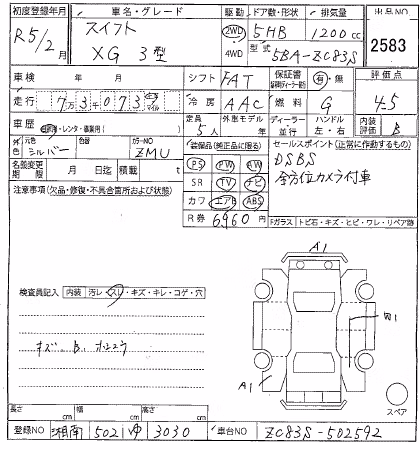 初度登録年月 車名・グレード 駆動 ドア数・形状 排気量 出品NO
R5/2月 スイフト XG 3型 2WD 4WD 5HB 1200cc 2583
型式 5BA-ZC83S
車検 年 月 シフト FAT 保証書 有・無 評価点
走行 7万3千073 冷房 AAC 燃料 G 4.5
車歴 自家用・レンタ・事業用( ) 定員 5人 外装モデル 年 ディーラー 並行 ハンドル 左・右 内装評価 B
外色 元色 シルバー 色替 カラーNO ZMU 装備品(純正品に限る) セールスポイント(正常に作動するもの)
名義変更期限 月 日迄 積載 t PS PW AW DSBS
SR TV ナビ 全方位カメラ付車
注意事項(欠品・修復・不具合箇所および状態) カワ エアB ABS
R券 6960円
Fガラス トビ石・キズ・ヒビ・ワレ・リペア跡
A1
検査員記入 内装 汚レ・スレ・キズ・キレ・コゲ・穴
キズ
A1
スペア
長さ cm 幅 cm 高さ cm
登録NO 湘南 502 ゆ 3030 車台NO ZC83S-502592